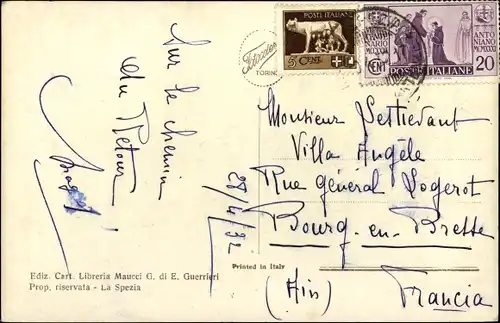 POSTE ITALIANE
5 CENT.
VII CENTENARIO
ANTONIANO
MCMXXXI
CENT
POSTE ITALIANE 20
TORINO
Sur le chemin
du Retour
28/4/32
Monsieur Settievant
Villa Angèle
Rue Général Logerot
Bourg-en-Bresse
(Ain) Francia
Ediz. Cart. Libreria Maucci G. di E. Guerrieri
Prop. riservata - La Spezia
Printed in Italy